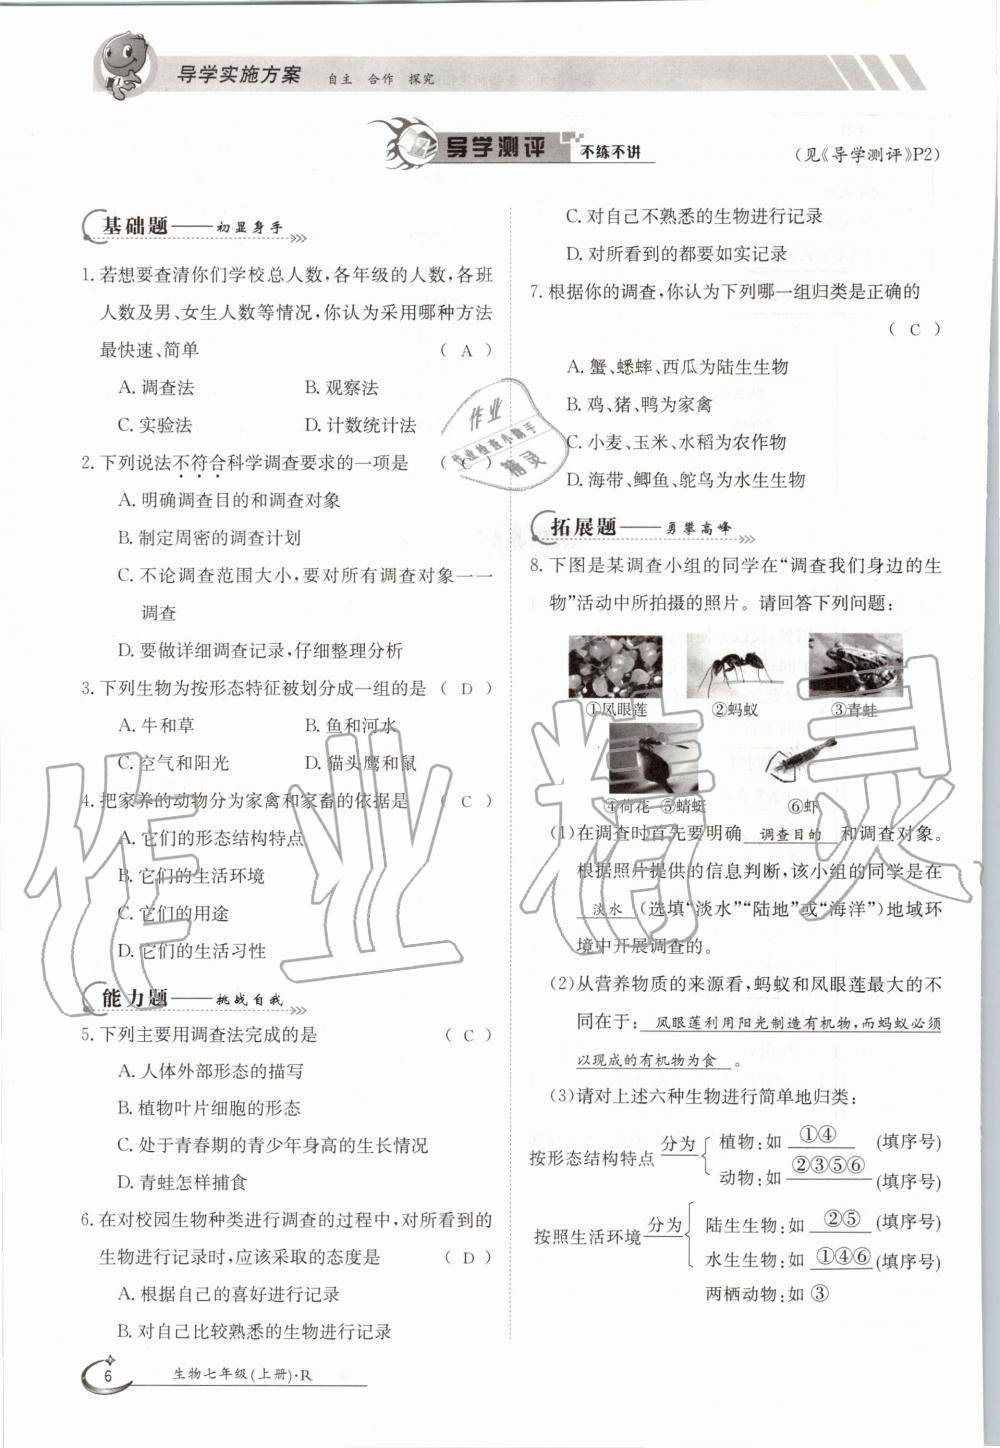 导学实施方案 自主 合作 探究
导学测评 不练不讲
(见《导学测评》P2)
基础题——初显身手
1. 若想要查清你们学校总人数,各年级的人数,各班
人数及男、女生人数等情况,你认为采用哪种方法
最快速、简单 ( A )
A. 调查法 B. 观察法
C. 实验法 D. 计数统计法
2. 下列说法不符合科学调查要求的一项是 ( C )
A. 明确调查目的和调查对象
B. 制定周密的调查计划
C. 不论调查范围大小,要对所有调查对象一一
调查
D. 要做详细调查记录,仔细整理分析
3. 下列生物为按形态特征被划分成一组的是 ( D )
A. 牛和草 B. 鱼和河水
C. 空气和阳光 D. 猫头鹰和鼠
4. 把家养的动物分为家禽和家畜的依据是 ( C )
A. 它们的形态结构特点
B. 它们的生活环境
C. 它们的用途
D. 它们的生活习性
能力题——挑战自我
5. 下列主要用调查法完成的是 ( C )
A. 人体外部形态的描写
B. 植物叶片细胞的形态
C. 处于青春期的青少年身高的生长情况
D. 青蛙怎样捕食
6. 在对校园生物种类进行调查的过程中,对所看到的
生物进行记录时,应该采取的态度是 ( D )
A. 根据自己的喜好进行记录
B. 对自己比较熟悉的生物进行记录
C. 对自己不熟悉的生物进行记录
D. 对所看到的都要如实记录
7. 根据你的调查,你认为下列哪一组归类是正确的
( C )
A. 蟹、蟋蟀、西瓜为陆生生物
B. 鸡、猪、鸭为家禽
C. 小麦、玉米、水稻为农作物
D. 海带、鲫鱼、鸵鸟为水生生物
拓展题——勇攀高峰
8. 下图是某调查小组的同学在“调查我们身边的生
物”活动中所拍摄的照片。请回答下列问题:
①凤眼莲 ②蚂蚁 ③青蛙
④荷花 ⑤蜻蜓 ⑥虾
(1)在调查时首先要明确 调查目的 和调查对象。
根据照片提供的信息判断,该小组的同学是在
淡水 (选填“淡水”“陆地”或“海洋”)地域环
境中开展调查的。
(2)从营养物质的来源看,蚂蚁和凤眼莲最大的不
同在于: 凤眼莲利用阳光制造有机物,而蚂蚁必须
以现成的有机物为食 。
(3)请对上述六种生物进行简单地归类:
按形态结构特点 分为 植物:如 ①④ (填序号)
动物:如 ②③⑤⑥ (填序号)
按照生活环境 分为 陆生生物:如 ②⑤ (填序号)
水生生物:如 ①④⑥ (填序号)
两栖动物:如 ③
6 生物七年级(上册)·R
作业精灵
作业
作业检查小助手
精灵